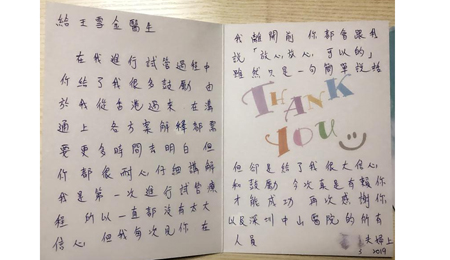 給王雪金醫生
在我進行試管過程中
你給了我很多鼓勵 由
於我從香港過來 在溝
通上 各方案解釋都需
要更多時間去明白 但
你都很耐心仔細講解
我是第一次進行試管療
程 所以一直都沒有太大
信心 但我每次見你 在
我離開前 你都會跟我
說「放心，放心，可以的」
雖然只是一句簡單說話
THANK
YOU
但卻是給了我很大信心
和鼓勵 今次真是有賴你
才能成功 再次感謝你，
以及深圳中山醫院的所有
人員
夫婦上
2019